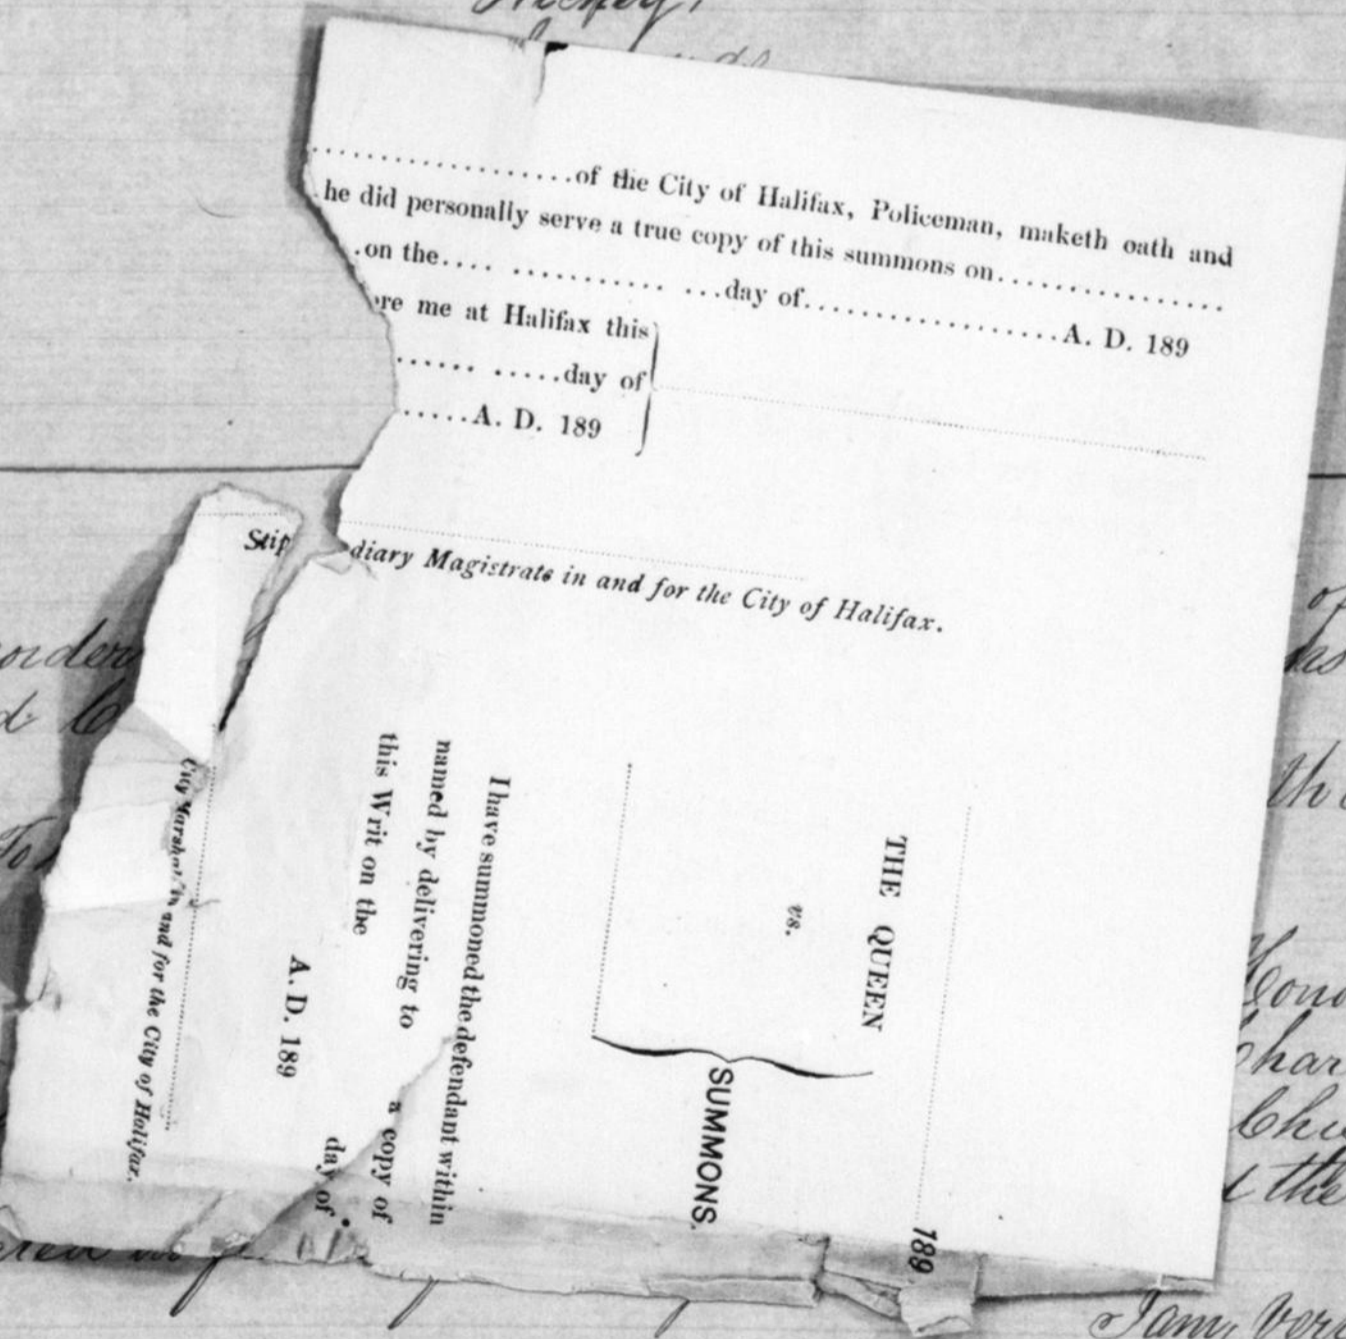 of the City of Halifax, Policeman, maketh oath and
he did personally serve a true copy of this summons on
on the .... day of .... A. D. 189
re me at Halifax this
day of
A. D. 189
Stip diary Magistrate in and for the City of Halifax.
189
THE QUEEN
vs.
SUMMONS.
I have summoned the defendant within
named by delivering to a copy of
this Writ on the day of
A. D. 189
City Marshal in and for the City of Halifax.
order
of
as
th
To
Chu
the
I am, very